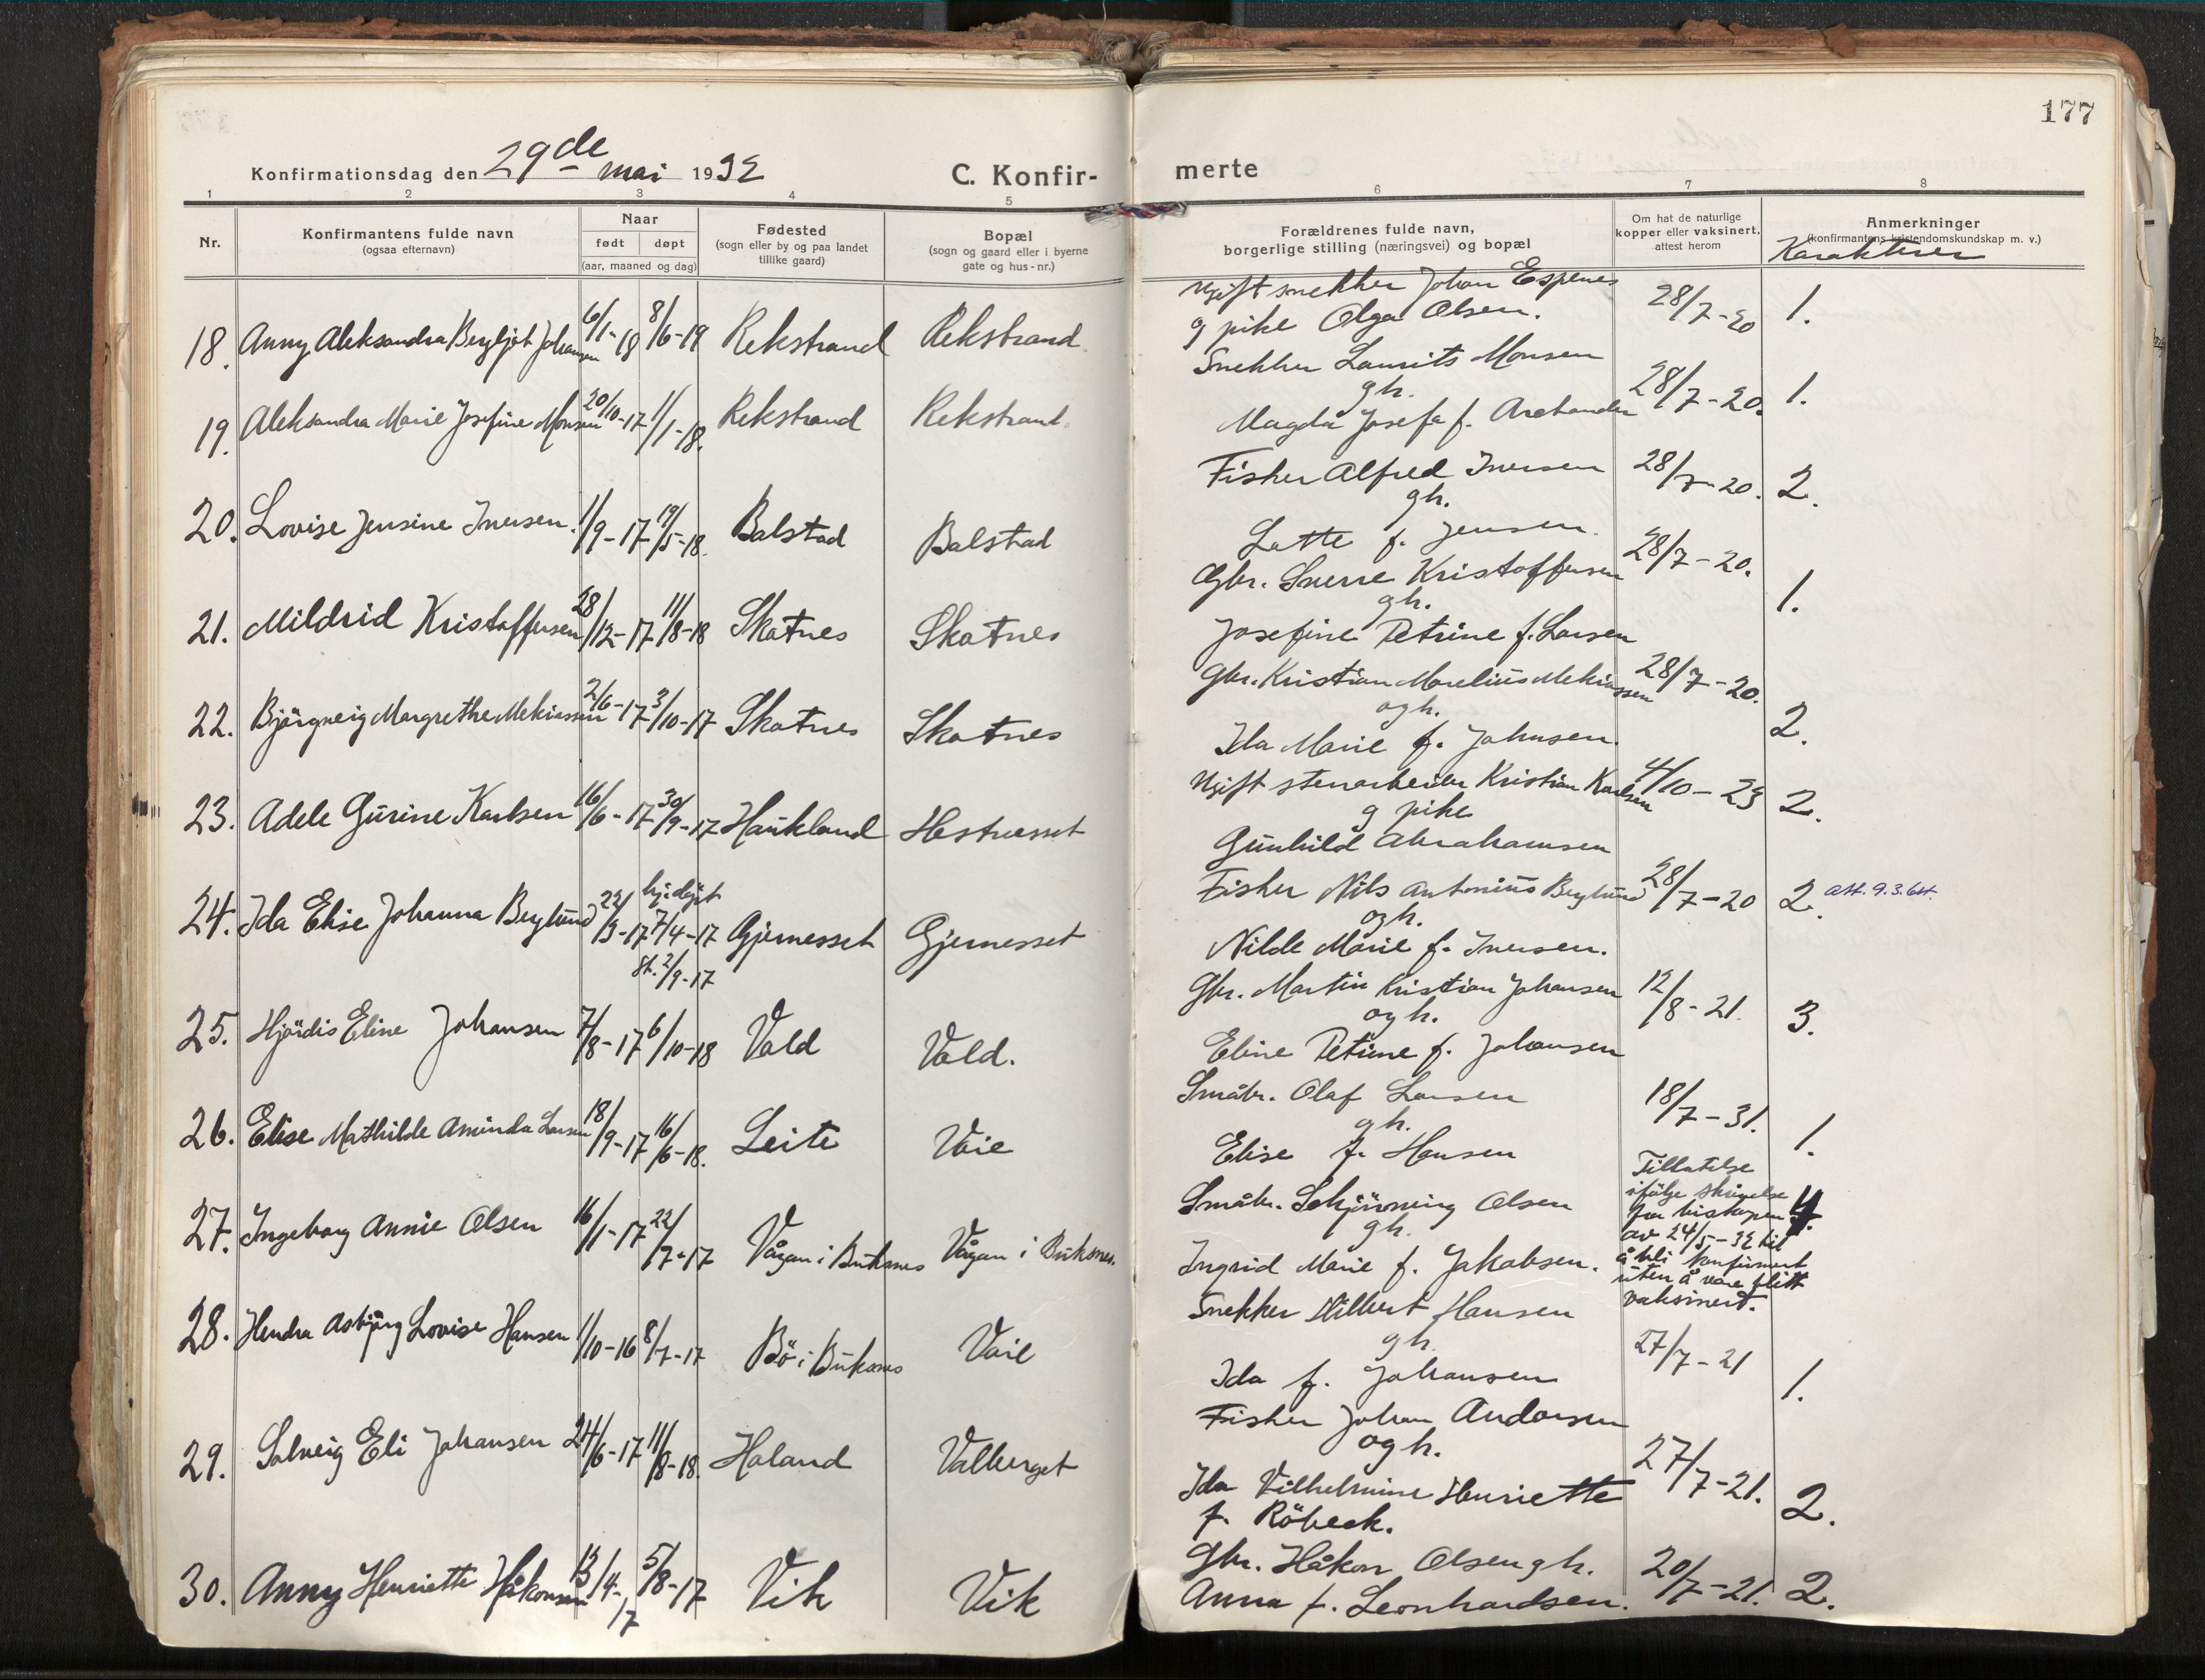 177
Konfirmationsdag den 29de mai 1932
C. Konfir-
merte
1 2 3 4 5 6 7 8
Nr.
Konfirmantens fulde navn
(ogsaa efternavn)
Naar
født døpt
(aar, maaned og dag)
Fødested
(sogn eller by og paa landet
tillike gaard)
Bopæl
(sogn og gaard eller i byerne
gate og hus-nr.)
Forældrenes fulde navn,
borgerlige stilling (næringsvei) og bopæl
Om hat de naturlige
kopper eller vaksinert,
attest herom
Anmerkninger
(konfirmantens kristendomskundskap m. v.)
Karakterer
18. Anny Aleksandra Bergljot Johansen 6/1-18 8/6-19 Rekstrand Rekstrand.
Ugift snekker Johan Espenes
g pike Olga Olsen.
28/7-20 1.
19. Aleksandra Marie Josefine Monsen 20/10-17 1/1-18. Rekstrand Rekstrand.
Snekker Laurits Monsen
gh.
Magda Josefa f.
28/7-20. 1.
20. Lovise Jensine Iversen. 1/9-17 19/5-18. Balstad Balstad
Fisker Alfred Iversen
gh.
Lotte f. Jensen.
28/7-20. 2.
21. Mildrid Kristoffersen 28/12-17 11/8-18 Skotnes Skotnes
Gbr. Sverre Kristoffersen
gh.
Josefine Petrine f. Larsen
28/7-20. 1.
22. Bjørgveig Margrethe Mekiassen 2/6-17 3/10-17 Skotnes Skotnes
Gbr. Kristian Marelius Mekiassen
ogh.
Ida Marie f. Johnsen.
28/7-20. 2.
23. Adele Gurine Karlsen 16/6-17 30/9-17 Haukland Hestnesset
Ugift stenarbeider Kristian Karlsen
g pike
Gunhild Abrahamsen
4/10-23 2.
24. Ida Elise Johanna Berglund 22/3-17 hj.døpt 7/4-17 St. 2/9-17 Gjernesset Gjernesset
Fisker Nils Antonius Berglund
ogh.
Nilde Marie f. Iversen.
28/7-20 2. att. 9.3.64.
25. Hjördis Eline Johansen 7/8-17 6/10-18 Vold Vold.
Gbr. Martin Kristian Johansen
ogh.
Eline Petrine f. Johansen
12/8-21. 3.
26. Elise Mathilde Aminda Larsen 18/9-17 16/6-18. Leite Voie
Småbr. Olaf Larsen
gh.
Elise f. Hansen
18/7-31. 1.
27. Ingeborg Annie Olsen 16/1-17 22/7-17 Vågan i Buksnes Vågan i Buksnes.
Småbr. Schjörning Olsen
gh.
Ingrid Marie f. Jakobsen.
Tillatelse
ifølge skrivelse
fra biskopen
av 24/5-32 til
å bli konfirmert
uten å være blitt
vaksinert.
4.
28. Hendra Asbjørg Lovise Hansen 1/10-16 8/7-17 Bö i Buksnes Voie
Snekker Hilbert Hansen
gh.
Ida f. Johansen
27/7-21 1.
29. Solveig Eli Johansen 24/6-17 11/8-18. Holand Valberget
Fisker Johan Andorsen
ogh.
Ida Vilhelmine Henriette
f. Röbeck.
27/7-21. 2.
30. Anny Henriette Håkonsen 13/4-17 5/8-17 Vik Vik
Gbr. Håkon Olsen gh.
Anna f. Leonhardsen.
20/7-21. 2.